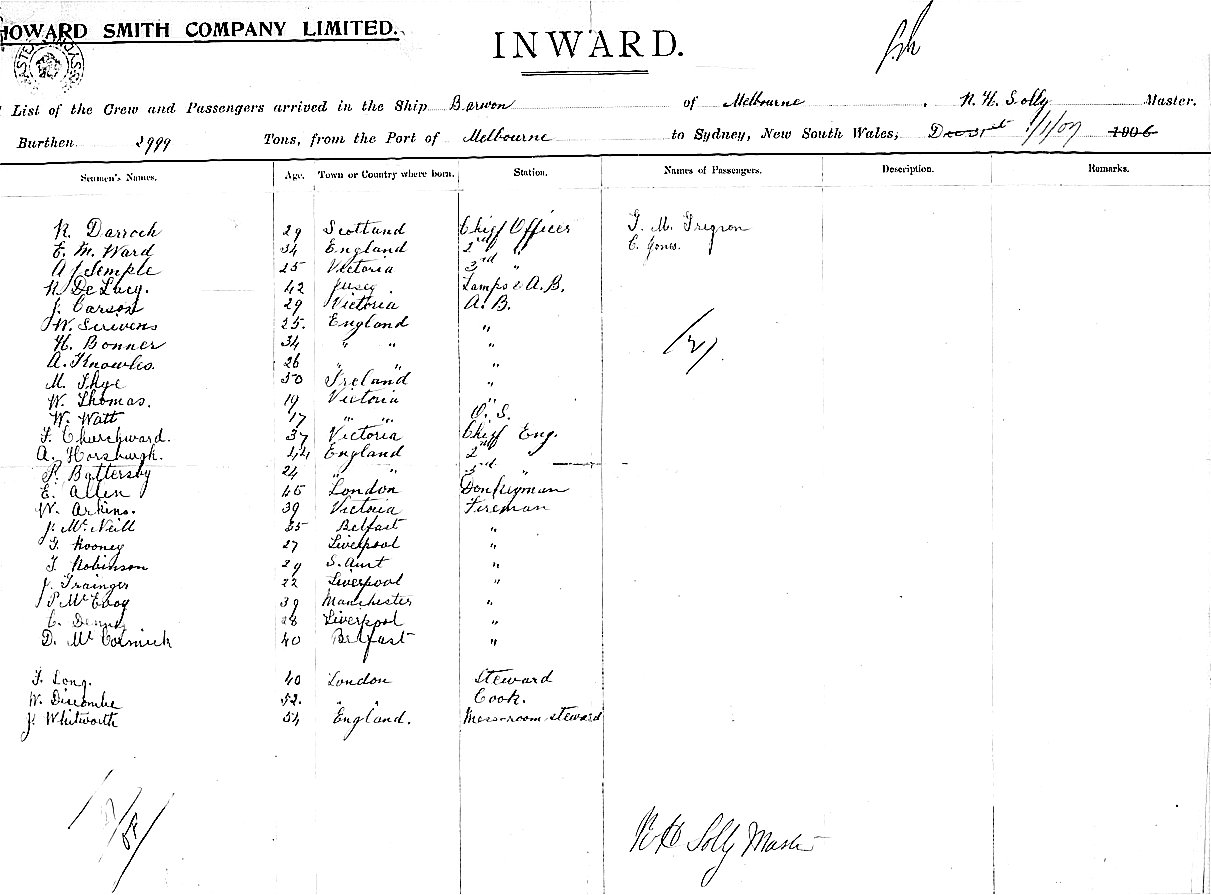 HOWARD SMITH COMPANY LIMITED.
INWARD.
List of the Crew and Passengers arrived in the Ship Barwon of Melbourne, N. H. Solly Master.
Burthen 2999 Tons, from the Port of Melbourne to Sydney, New South Wales, 1/1/07 1906
Seamen's Names. Age. Town or Country where born. Station. Names of Passengers. Description. Remarks.
N. Darroch 29 Scotland Chief Officer
E. M. Ward 34 England 2nd "
A J Semple 25 Victoria 3rd "
N. De Lacy. 42 Lamps & A.B.
J. Carson 29 Victoria A.B.
W. Scrivens 25. England "
H. Bonner 34 " " "
A. Knowles. 26 " " "
M. Skye 50 Ireland "
W. Thomas. 19 Victoria "
W. Watt 17 " " O.S.
F. Churchward. 37 Victoria Chief Eng.
A. Horsburgh. 44 England 2nd
P. Battersby 24 " " 3rd "
E. Allen 45 London Donkeyman
W. Arkins. 39 Victoria Fireman
J. McNeill 35 Belfast "
T. Rooney 27 Liverpool "
T. Robinson 29 S. Aust "
J. Grainger 22 Liverpool "
P McEvoy 39 Manchester "
C. 28 Liverpool "
D. McCormick 40 Belfast "
T. Long. 40 London Steward
W. Discombe 52. " " Cook.
J. Whitworth 54 England. Mess-room steward
C. Jones.
/2/
Solly Master